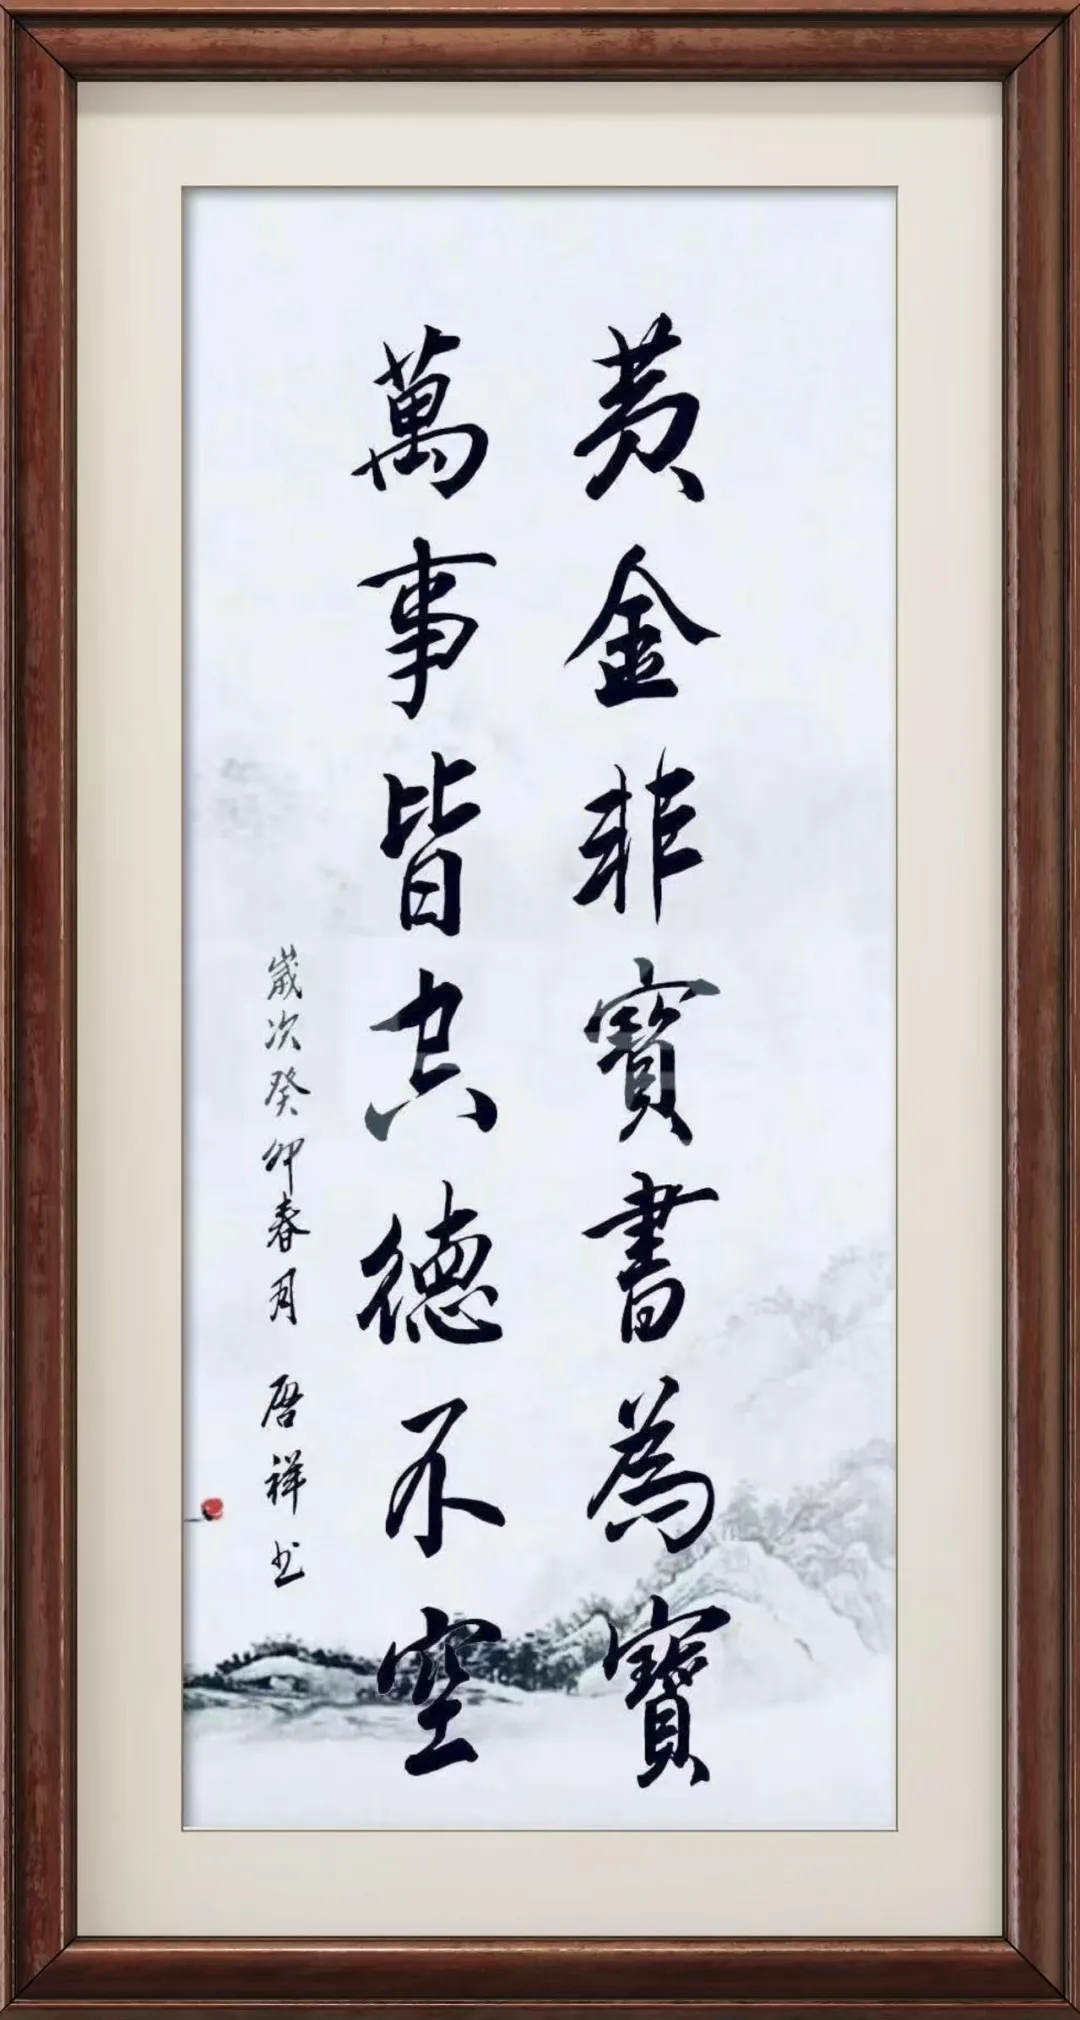 黄金非寳書為寳
萬事皆空德不空
歲次癸卯春月 啓祥书